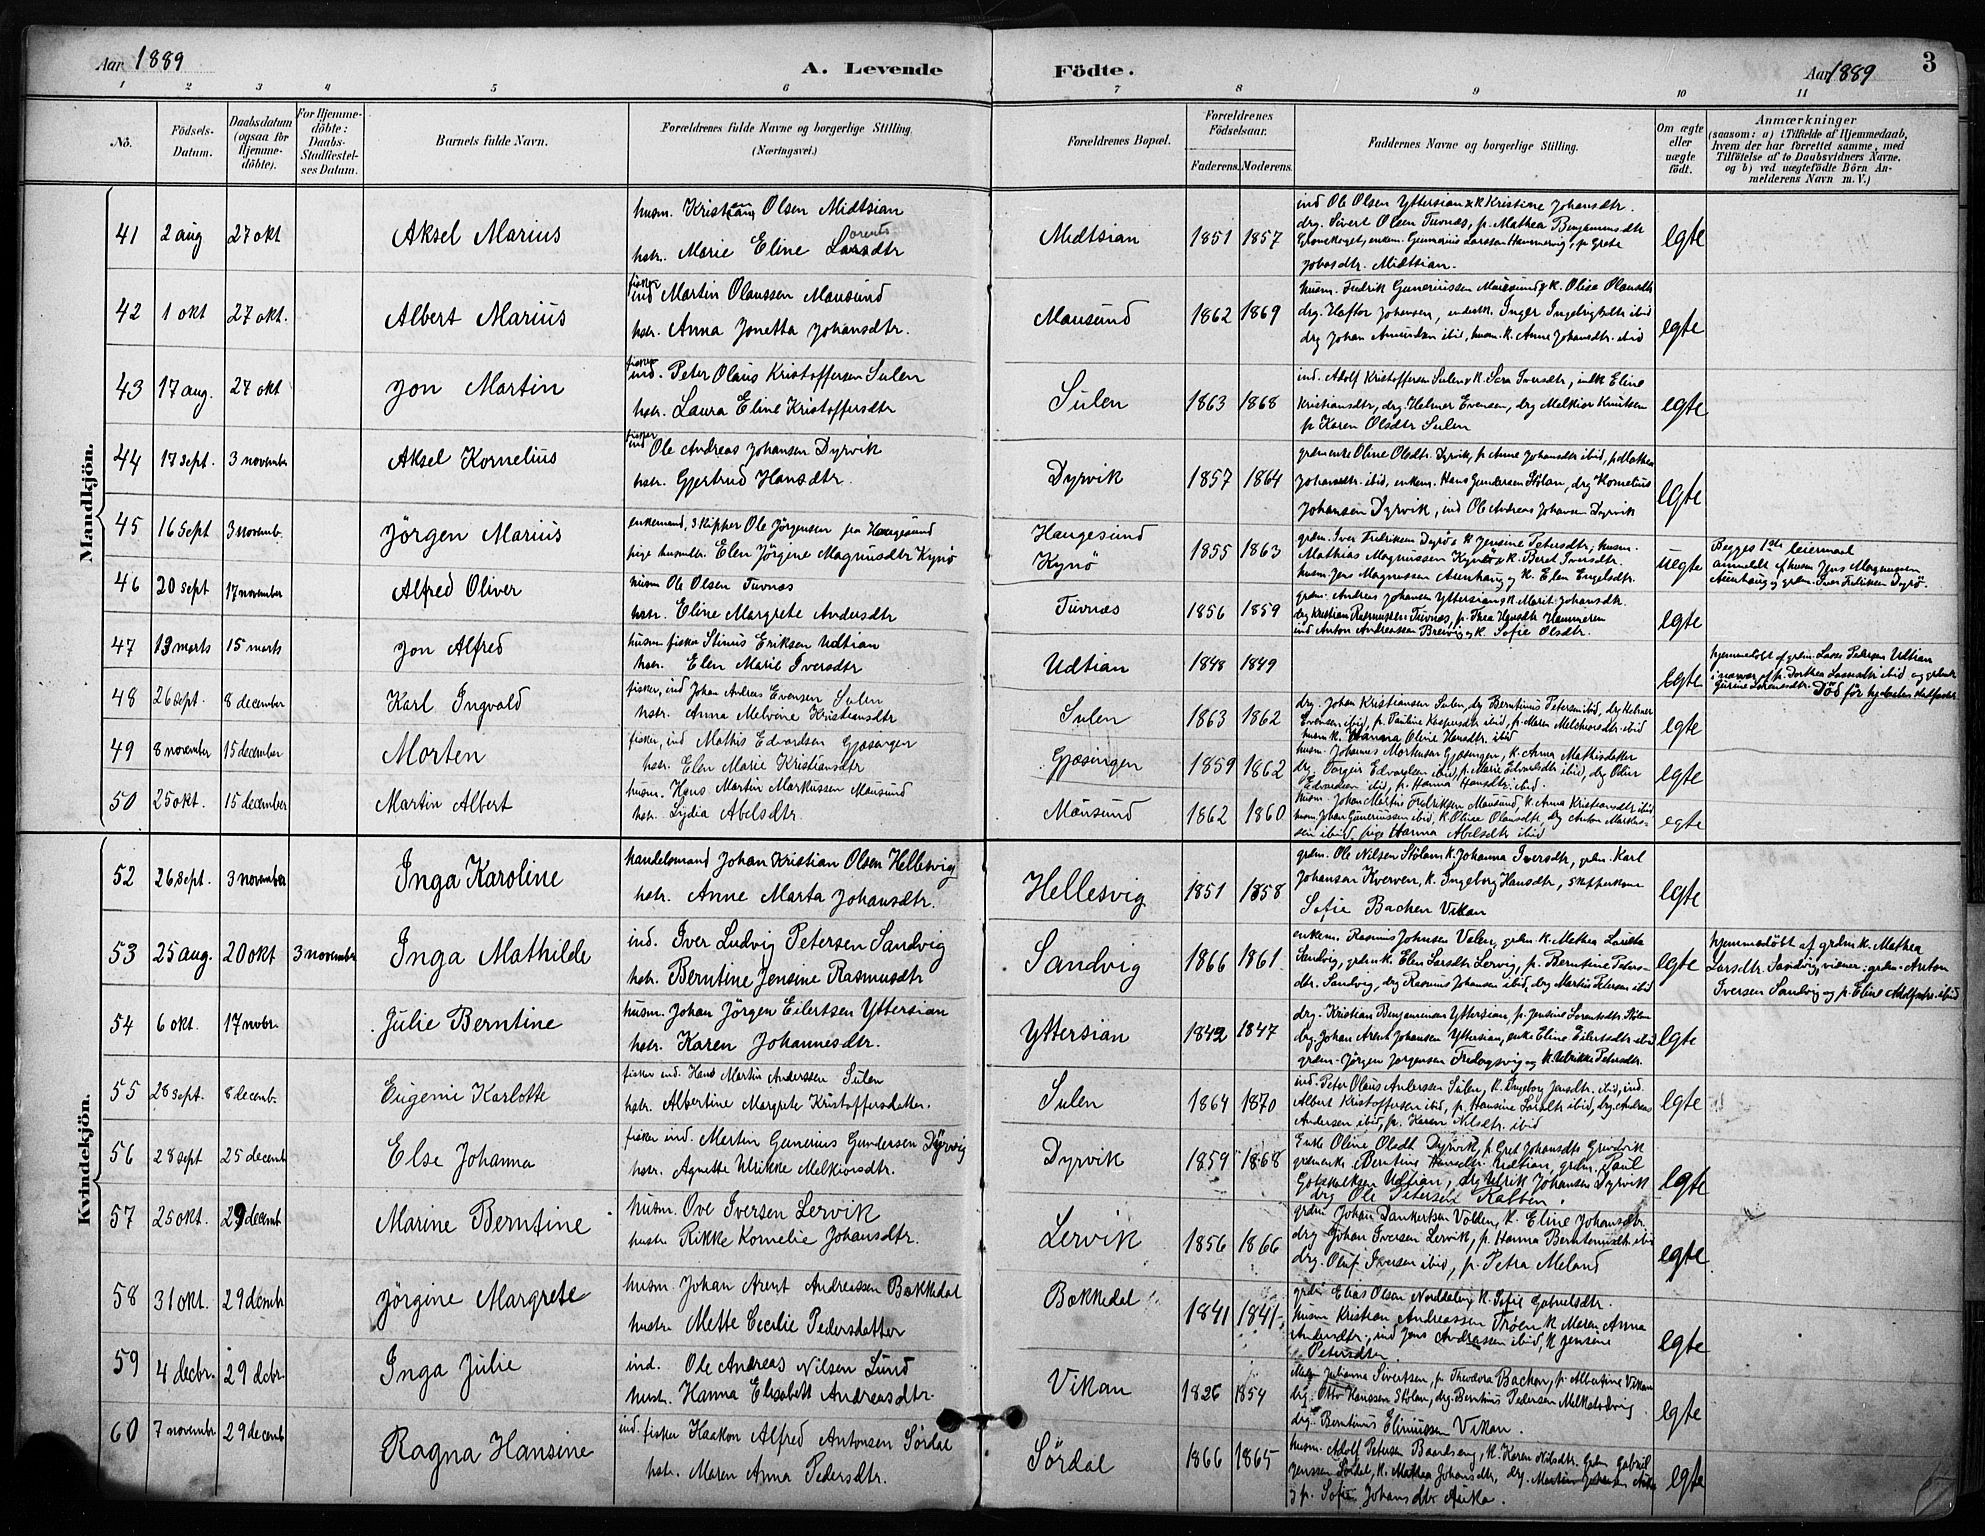 Aar 1889
A. Levende Födte.
Aar 1889
3
1 2 3 4 5 6 7 8 9 10 11
No.
Födsels-Datum.
Daabsdatum (ogsaa for Hjemmedöbte).
For Hjemmedöbte: Daabs-Stadfæstelses Datum.
Barnets fulde Navn.
Forældrenes fulde Navne og borgerlige Stilling. (Næringsvei.)
Forældrenes Bopæl.
Forældrenes Födselsaar.
Faderens. Moderens.
Faddernes Navne og borgerlige Stilling.
Om ægte eller uægte födt.
Anmærkninger
(saasom: a) i Tilfælde af Hjemmedaab, hvem der har forrettet samme, med Tilföielse af to Daabsvidners Navne. og b) ved uægtefödte Börn Anmelderens Navn m. V.)
Mandkjön.
41 2 aug 27 okt Aksel Marius
husm. Kristian Olsen Midtsian
hstr. Marie Eline Lorentsdtr
Midtsian 1851 1857
ind Ole Olsen Yttersian & K. Kristine Johansdtr.
drg. Sivert Olsen Tuvnæs, p. Mathea Benjaminsdtr
Midtsian.
egte
42 1 okt 27 okt. Albert Marius
fisker ind Martin Olaussen Mausund
hstr. Anna Jonetta Johansdtr.
Mausund 1862 1869
drg. Haftor Johansen,
husm. K. Anne Johansdtr. ibid
egte
43 17 aug. 27 okt Jon Martin
fisker ind. Peter Olaus Kristoffersen Sulen
hstr. Laura Eline Kristoffersdtr
Sulen 1863 1868
ind. Adolf Kristoffersen Sulen & K. Sara Iversdtr, indk Eline
Kristiansdtr, drg. Helmer Evensen, drg Melkior Knutsen
p Karen Olsdtr Sulen
egte
44 17 sept. 3 november Aksel Kornelius
fisker ind Ole Andreas Johansen Dyrvik
hstr. Gjertrud Hansdtr.
Dyrvik 1857 1864
grdm enke Oline Olsdtr. Dyrvik, p. Anne Johansdtr ibid, p Mathea
Johansdtr. ibid, enkem. Hans Gundersen Stölan, drg Kornelius
Johansen Dyrvik, ind Ole Andreas Johansen Dyrvik
egte
45 16 sept 3 novemb. Jörgen Marius
enkemand, skipper Ole Jörgensen fra Haugesund
pige husmdtr. Elen Jörgine Magnusdtr Kynö
Haugesund
Kynö 1855 1863
grdm. Iver Fredriksen Dyrö & K Jensine Petersdtr, husm.
Mathias Magnussen Kynö & K. Beret Iversdtr.
husm Jens Magnussen Aunhaug & K. Elen Engelsdtr.
uegte
Begges 1ste leiermaal
anmeldt af husm Jens Magnussen
Aunhaug og grdm. Iver Fredriksen Dyrö.
46 20 sept 17 november Alfred Oliver
husm Ole Olsen Tuvnæs
hstr. Eline Margrete Andersdtr
Tuvnæs 1856 1859
grdm. Andreas Johansen Yttersian & K. Marit Johansdtr.
drg Kristian Rasmussen Tuvnæs, p. Thea Hansdtr Hammeren
ind Anton Andreassen Breivig & K. Sofie Olsdtr.
egte
47 13 marts 15 marts Jon Alfred
husm fisker Stinus Eriksen Udtian
hstr. Elen Marie Iversdtr
Udtian 1848 1849
egte
hjemmedöbt af grdm. Lasse Petersen Udtian
48 26 sept. 8 december Karl Ingvald
fisker, ind Johan Andreas Evensen Sulen
hstr. Anna Melvine Kristiansdtr
Sulen 1863 1862
drg. Johan Kristiansen Sulen, drg Berntinus Petersen ibid, drg Helmer
Evensen ibid, p. Pauline Kaspersdtr ibid, p. Maren Melchiorsdtr. ibid
husm k. Hanna Oline Hansdtr. ibid
egte
49 8 november 15 december Morten
fisker, ind Mathis Edvardsen Gjæsingen
hstr. Elen Marie Kristiansdtr
Gjæsingen 1859 1862
husm. Johannes Mortensen Gjæsingen, K. Anna Mathisdatter
drg. Torger Edvardsen ibid, p. Marie Edvardsdtr ibid, drg Odin
Edvardsen ibid, p. Hanna Hansdtr. ibid.
egte
50 25 okt. 15 december Martin Albert
husm. Hans Martin Markussen Mausund
hstr. Lydia Abelsdtr.
Mausund 1862 1860
husm. Johan Martin Fredriksen Mausund, K. Anna Kristiansdtr. ibid,
husm Johan Gunerussen ibid, K Oline Olausdtr, drg Anton Markus-
sen ibid, pige Hanna Abelsdtr ibid
egte
Kvindekjön.
52 26 sept. 3 november Inga Karoline
handelsmand Johan Kristian Olsen Hellesvig
hstr. Anne Marta Johansdtr.
Hellesvig 1851 1858
grdm. Ole Nilsen Stölan & K. Johanna Iversdtr, grdm. Karl
Johansen Kverven, K. Ingeborg Hansdtr, skipperkone
Sofie Bachen Vikan
egte
53 25 aug. 20 okt 3 november Inga Mathilde
ind. Iver Ludvig Petersen Sandvig
hstr. Berntine Jensine Rasmusdtr
Sandvig 1866 1861
enkem. Rasmus Johnsen Valen, grdm. K. Mathea Larsdtr
Sandvig, grdm K. Elen Larsdtr Lervig, p. Berntine Peters-
dtr. Sandvig, drg Rasmus Johansen ibid, drg Martin Petersen ibid
egte
hjemmedöbt af grdm K. Mathea
Larsdtr. Sandvig, vidner: grdm. Anton
Iversen Sandvig og p. Eline Adolfsdtr. ibid
54 6 okt. 17 novbr. Julie Berntine
husm. Johan Jörgen Eilertsen Yttersian
hstr. Karen Johannesdtr.
Yttersian 1842 1847
drg. Kristian Benjaminsen Yttersian, p. Jensine Lorentsdtr. Stölan
drg. Johan Arent Johansen Yttersian, enke Eline Eilertsdtr ibid
grdm. Jörgen Jörgensen Fredagsvig & K. Ulrikke Petersdtr.
egte
55 28 sept. 8 decemb. Eugemi Karlotte
fisker ind. Hans Martin Anderssen Sulen
hstr. Albertine Margrete Kristoffersdatter.
Sulen 1864 1870
ind. Peter Olaus Anderssen Sulen, K. Ingeborg Jensdtr. ibid, ind.
Albert Kristoffersen ibid, p. Hansine Larsdtr ibid, drg. Andreas
Andersen ibid, p. Karen Nilsdtr. ibid
egte
56 28 sept 25 decemb Else Johanna
fisker ind. Martin Gunerius Gundersen Dyrvig
hstr. Agnette Ulrikke Melkiorsdtr.
Dyrvik 1859 1868
Enke Oline Olsdtr Dyrvik, p. Gret Johansdtr Grindvik
grdmenke Berntine Hansdtr. Udtian, grdm. Paul
Gotskalksen Udtian, drg Ulrik Johansen Dyrvik
drg Ole Petersen Kalven.
egte
57 25 okt. 29 decemb Marine Berntine
husm. Ove Iversen Lervik
hustr. Rikke Kornelie Johansdtr.
Lervik 1856 1866
grdm Johan Dankertsen Volden, K. Eline Johansdtr.
drg Johan Iversen Lervik, p. Hanna Berntinusdtr. ibid
drg. Oluf Iversen ibid, p. Petra Meland
egte
58 31 okt. 29 decmbr Jörgine Margrete
husm. Johan Arent Andreassen Bekkedal
hustr. Mette Cecilie Pedersdatter
Bekkedal 1841 1841
grdm Elias Olsen Norddalen, K. Sofie Gabrielsdtr.
husm Kristian Andreassen Tröen K. Maren Anna
Andersdtr, ind Jens Andreassen ibid, K. Jensine
Petersdtr.
egte
59 4 decbr. 29 dcbr. Inga Julie
ind. Ole Andreas Nilsen Lund
hustr. Hanna Elisabeth Andreasdtr.
Vikan 1826 1854
Johanna Sivertsen, p. Theodora Bachen, p. Albertine Vikan
drg. Otto Hanssen Stölan, drg. Berntinus Pedersen
drg. Berntinus Elinussen Vikan.
egte
60 7 novembr 29 decemb Ragna Hansine
ind. fisker Haakon Alfred Antonsen Sördal
hstr. Maren Anna Pedersdtr.
Sördal 1866 1865
husm. Adolf Petersen Baadseng, K. Karen Nilsdtr. Grdm Gabriel
Jenssen Sördal, K. Mathea Johansdtr, drg. Martin Johansen
& p. Sofie Johansdtr Auka.
egte